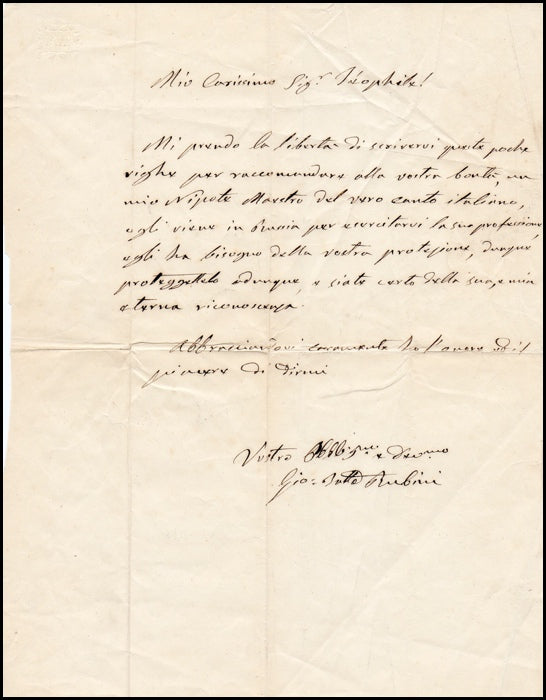 Mio Carissimo Sigr Teophile!
Mi prendo la libertà di scrivervi queste poche
righe per raccomandare alla vostra bontà, un
mio Nipote Maestro del vero canto italiano,
egli viene in Russia per esercitarvi la sua professione,
egli ha bisogno della vostra protezione, dunque
proteggetelo adunque, e siate certo della sua, e mia
eterna riconoscenza.
Abbracciandovi caramente ho l'onore ed il
piacere di dirmi
Vostro Obbligmo e Devmo
Gio: Batta Rubini